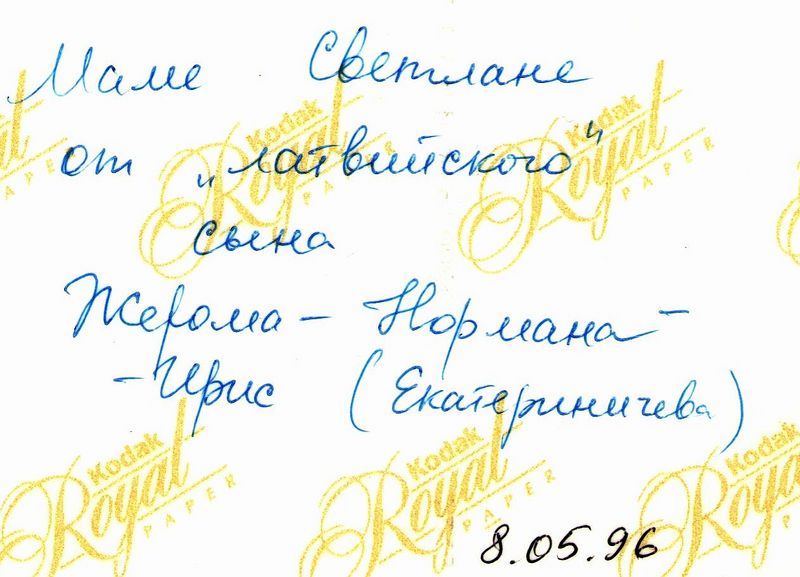 Маме Светлане
от „латвийского"
сына
Жерома – Нормана –
– Ирис (Екатериничева)
Kodak
Royal
PAPER
Kodak
Royal
PAPER
Kodak
Royal
PAPER
Kodak
Royal
PAPER
Kodak
Royal
PAPER
8.05.96